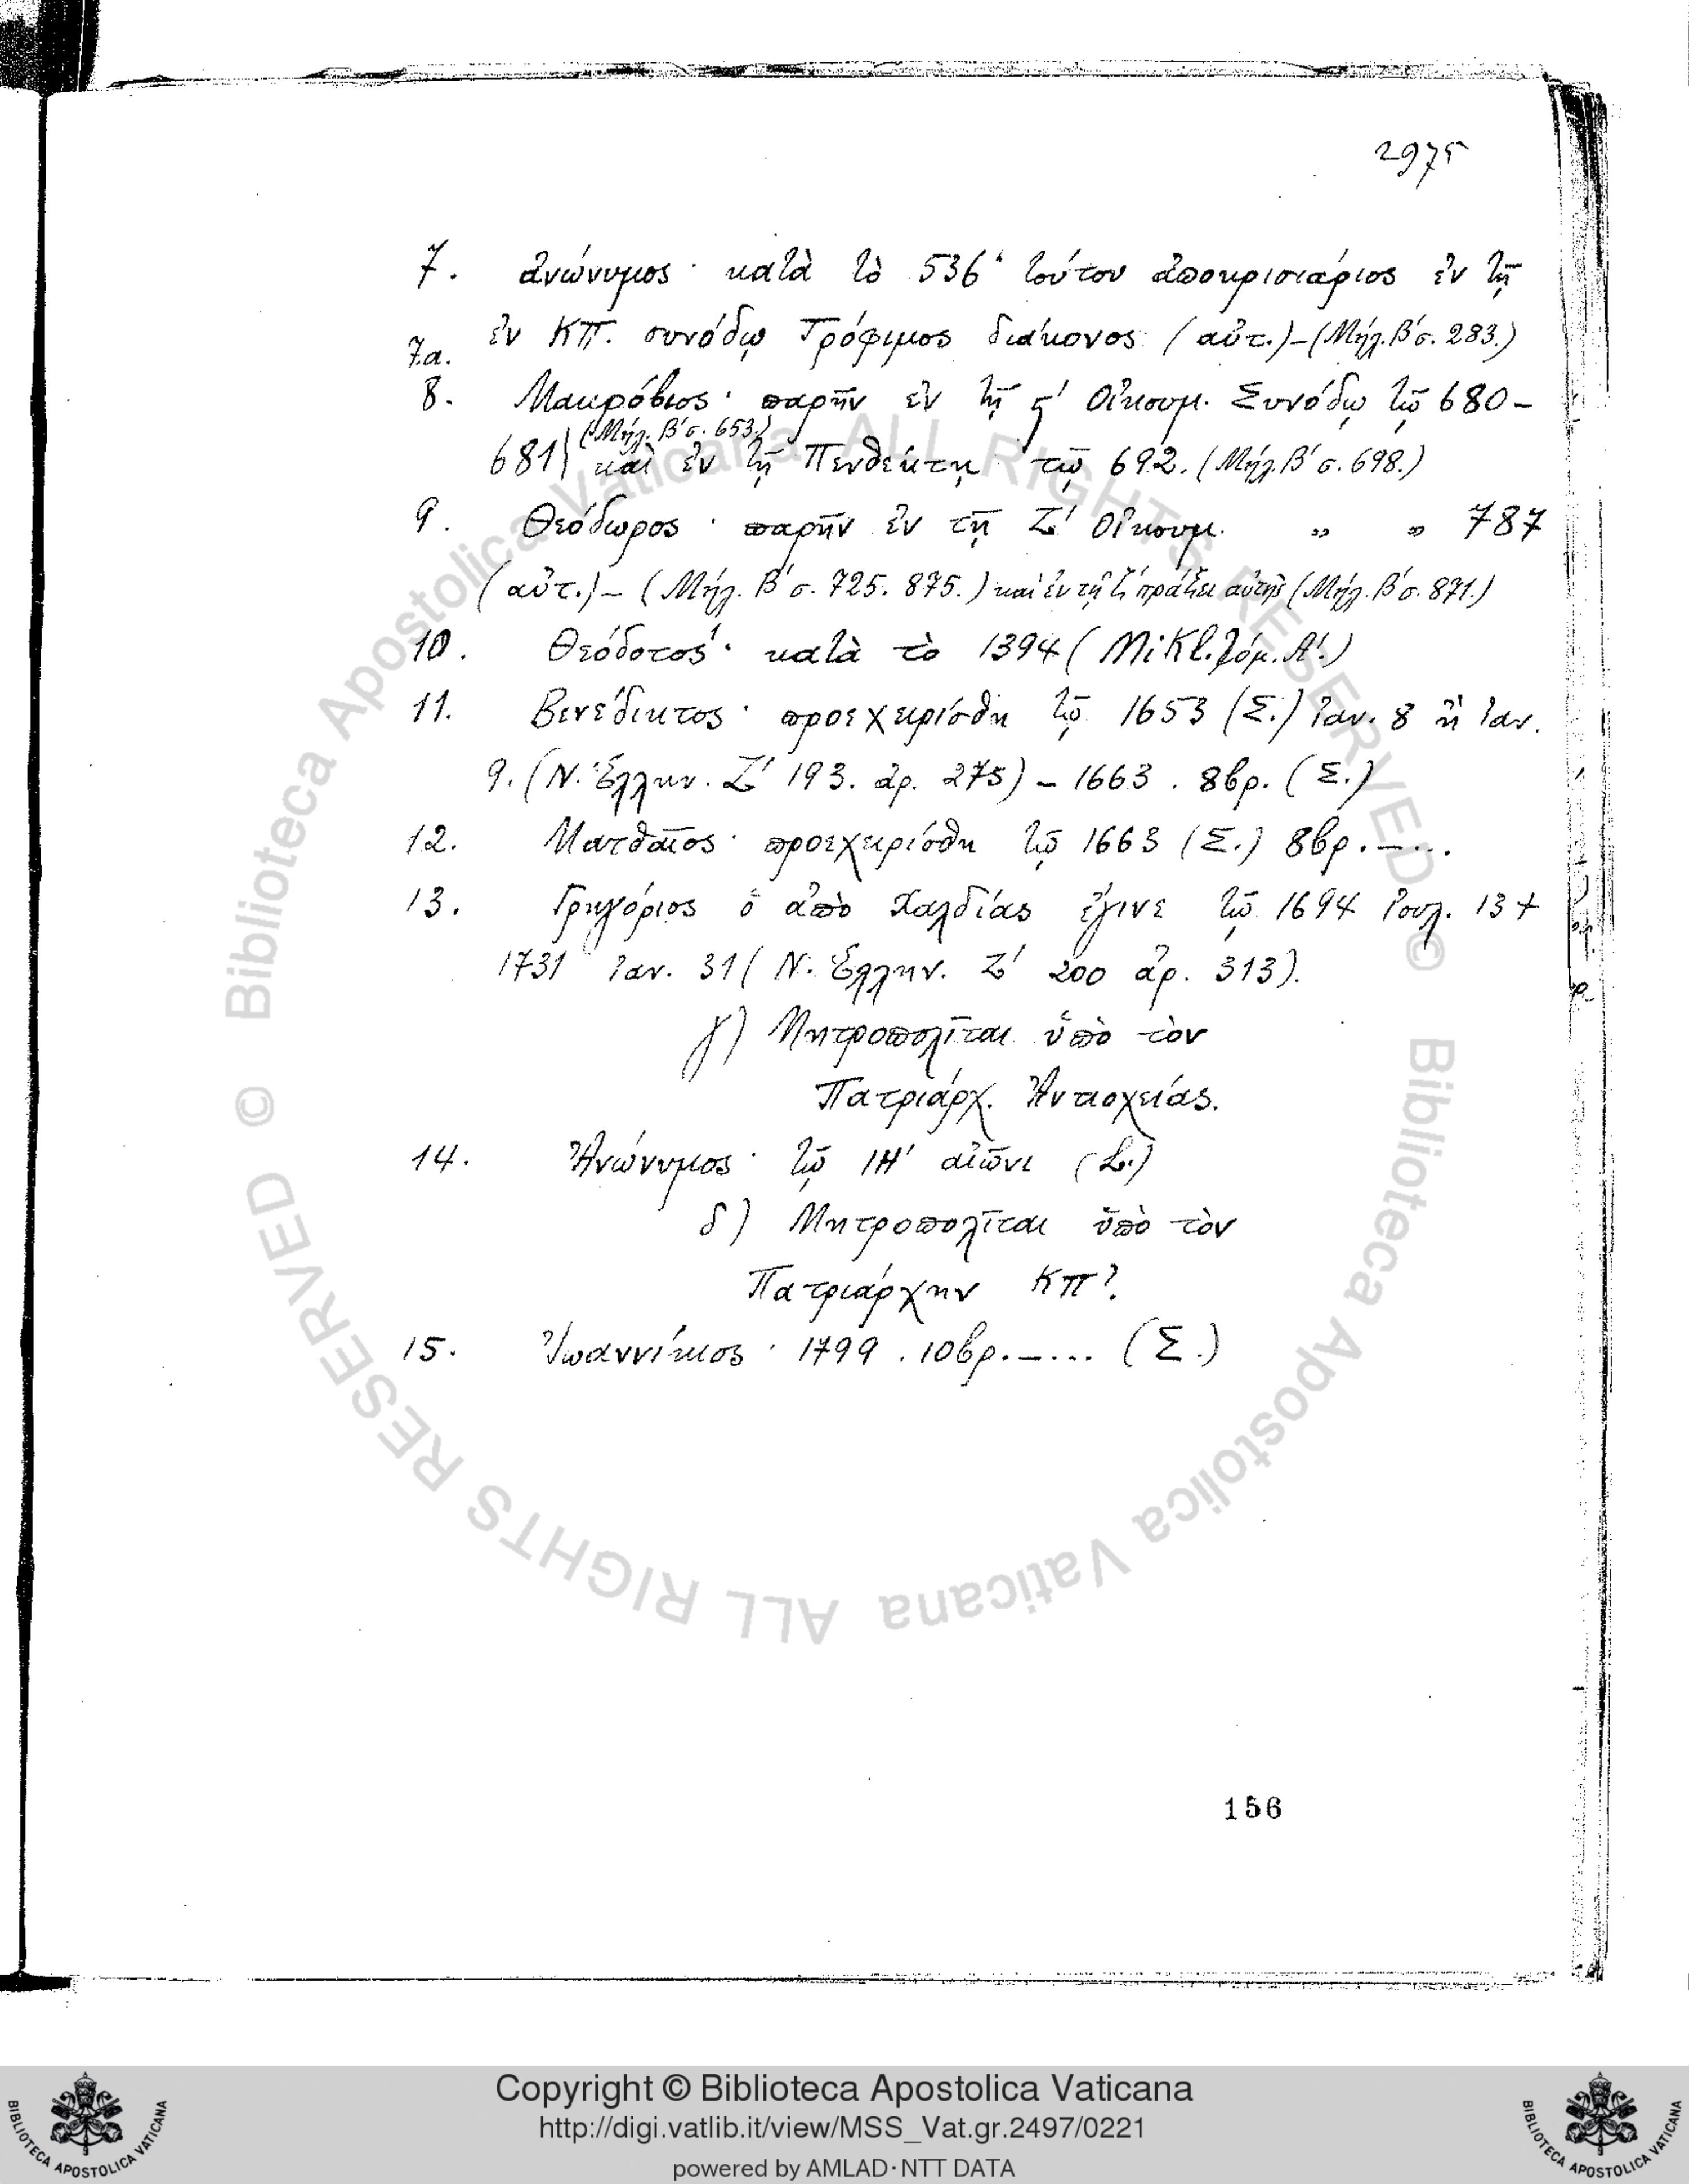 2975
7. ἀνώνυμος · κατὰ τὸ 536· τούτου ἀποκρισιάριος ἐν τῇ
ἐν ΚΠ. συνόδῳ Τρόφιμος διάκονος (αὐτ.) – (Μήλ. Β' σ. 283.)
7.α.
8. Μακρόβιος · παρῆν ἐν τῇ ϛ' Οἰκουμ. Συνόδῳ τῷ 680–
(Μήλ. Β' σ. 653.)
681) καὶ ἐν τῇ Πενθέκτῃ τῷ 692. (Μήλ. Β' σ. 698.)
9. Θεόδωρος · παρῆν ἐν τῇ Ζ' Οἰκουμ. „ „ 787
(αὐτ.) – (Μήλ. Β' σ. 725. 875.) καὶ ἐν τῇ ζ' πράξει αὐτῆς (Μήλ. Β' σ. 871.)
10. Θεόδοτος¹ · κατὰ τὸ 1394 (Mikl. τόμ. Α'.)
11. Βενέδικτος · προεχειρίσθη τῷ 1653 (Σ.) Ἰαν. 8 ἢ Ἰαν.
9. (Ν. Ἑλλην. Ζ' 193. ἀρ. 275) – 1663 . 8βρ. (Σ.)
12. Ματθαῖος · προεχειρίσθη τῷ 1663 (Σ.) 8βρ. – ...
13. Γρηγόριος ὁ ἀπὸ Χαλδίας ἔγινε τῷ 1694 Ἰουλ. 13 +
1731 Ἰαν. 31 (Ν. Ἑλλην. Ζ' 200 ἀρ. 313).
γ) Μητροπολῖται ὑπὸ τὸν
Πατριάρχ. Ἀντιοχείας.
14. Ἀνώνυμος · τῷ ΙΗ' αἰῶνι (L.)
δ) Μητροπολῖται ὑπὸ τὸν
Πατριάρχην ΚΠ?.
15. Ἰωαννίκιος · 1799 . 10βρ. – ... (Σ.)
156
© Biblioteca Apostolica Vaticana ALL RIGHTS RESERVED
© Biblioteca Apostolica Vaticana ALL RIGHTS RESERVED
BIBLIOTECA APOSTOLICA VATICANA
Copyright © Biblioteca Apostolica Vaticana
http://digi.vatlib.it/view/MSS_Vat.gr.2497/0221
powered by AMLAD·NTT DATA
BIBLIOTECA APOSTOLICA VATICANA